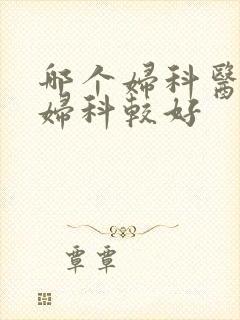 哪个婦科醫
婦科較好
覃覃